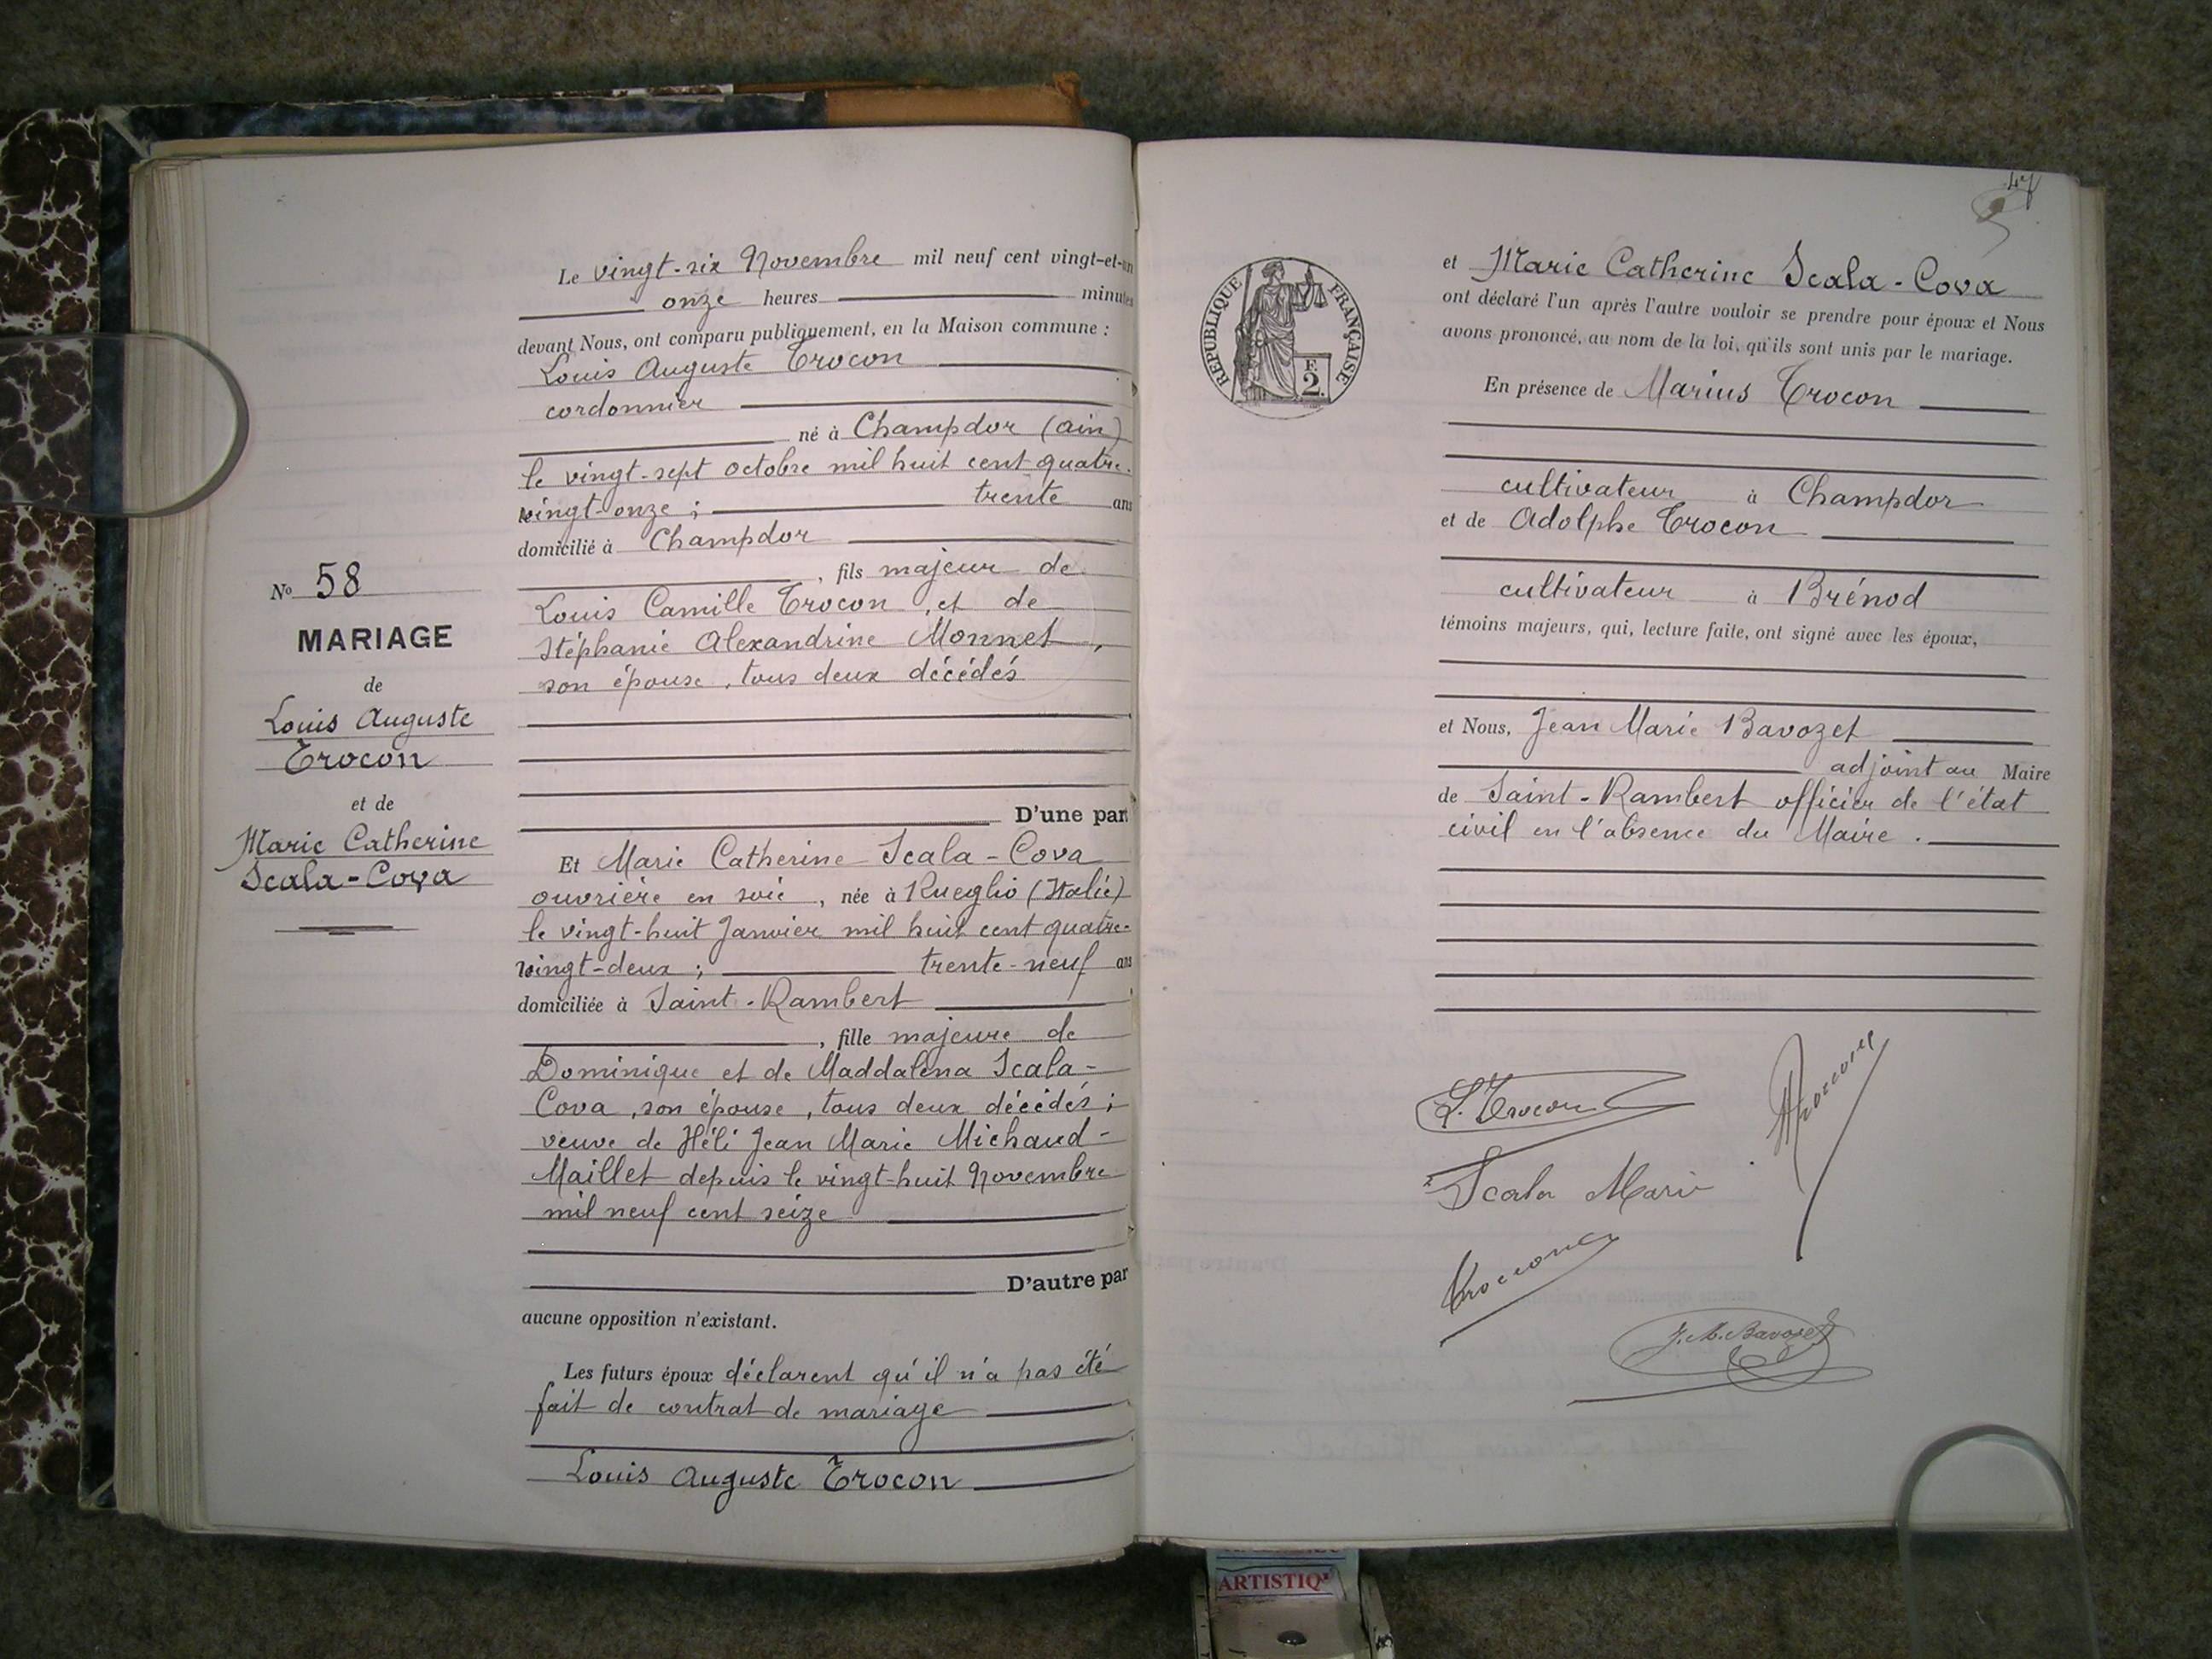 Nº 58
MARIAGE
de
Louis Auguste
Trocon
et de
Marie Catherine
Scala-Cova
Le vingt-six Novembre mil neuf cent vingt-et-un
onze heures minutes
devant Nous, ont comparu publiquement, en la Maison commune :
Louis Auguste Trocon
cordonnier
né à Champdor (ain)
le vingt-sept octobre mil huit cent quatre-
vingt-onze ; trente ans
domicilié à Champdor
, fils majeur de
Louis Camille Trocon, et de
Stéphanie Alexandrine Monnet,
son épouse, tous deux décédés
D'une part
Et Marie Catherine Scala-Cova
ouvrière en soie, née à Rueglio (Italie)
le vingt-huit Janvier mil huit cent quatre-
vingt-deux ; trente-neuf ans
domiciliée à Saint-Rambert
, fille majeure de
Dominique et de Maddalena Scala-
Cova, son épouse, tous deux décédés ;
veuve de Héli Jean Marie Michaud-
Maillet depuis le vingt-huit Novembre
mil neuf cent seize
D'autre par
aucune opposition n'existant.
Les futurs époux déclarent qu'il n'a pas été
fait de contrat de mariage
Louis Auguste Trocon
47
RÉPUBLIQUE FRANÇAISE
F.
2.
et Marie Catherine Scala-Cova
ont déclaré l'un après l'autre vouloir se prendre pour époux et Nous
avons prononcé, au nom de la loi, qu'ils sont unis par le mariage.
En présence de Marius Trocon
cultivateur à Champdor
et de Adolphe Trocon
cultivateur à Brénod
témoins majeurs, qui, lecture faite, ont signé avec les époux,
et Nous, Jean Marie Bavozet
adjoint au Maire
de Saint-Rambert officier de l'état
civil en l'absence du Maire.
L. Trocon
Scala Marie
J. M. Bavozet
ARTISTIQ